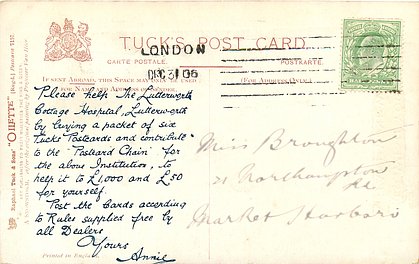 TUCK'S POST CARD
CARTE POSTALE.
POSTKARTE.
LONDON
DEC 31 06
IF SENT ABROAD, THIS SPACE MAY NOT BE USED
FOR NAME AND ADDRESS OF SENDER.
(FOR ADDRESS ONLY)
Raphael Tuck & Sons' "OILETTE" [Regd.] Postcard
Please help The Lutterworth
Cottage Hospital, Lutterworth
by buying a packet of six
Tucks Postcards and contribute
to the "Postcard Chain" for
the above Institution, to
help it to £1,000 and £50
for yourself.
Post the Cards according
to Rules supplied free by
all Dealers
Yours
Annie
Printed in England.
Miss Broughton
21 Northampton
Rd.
Market Harboro